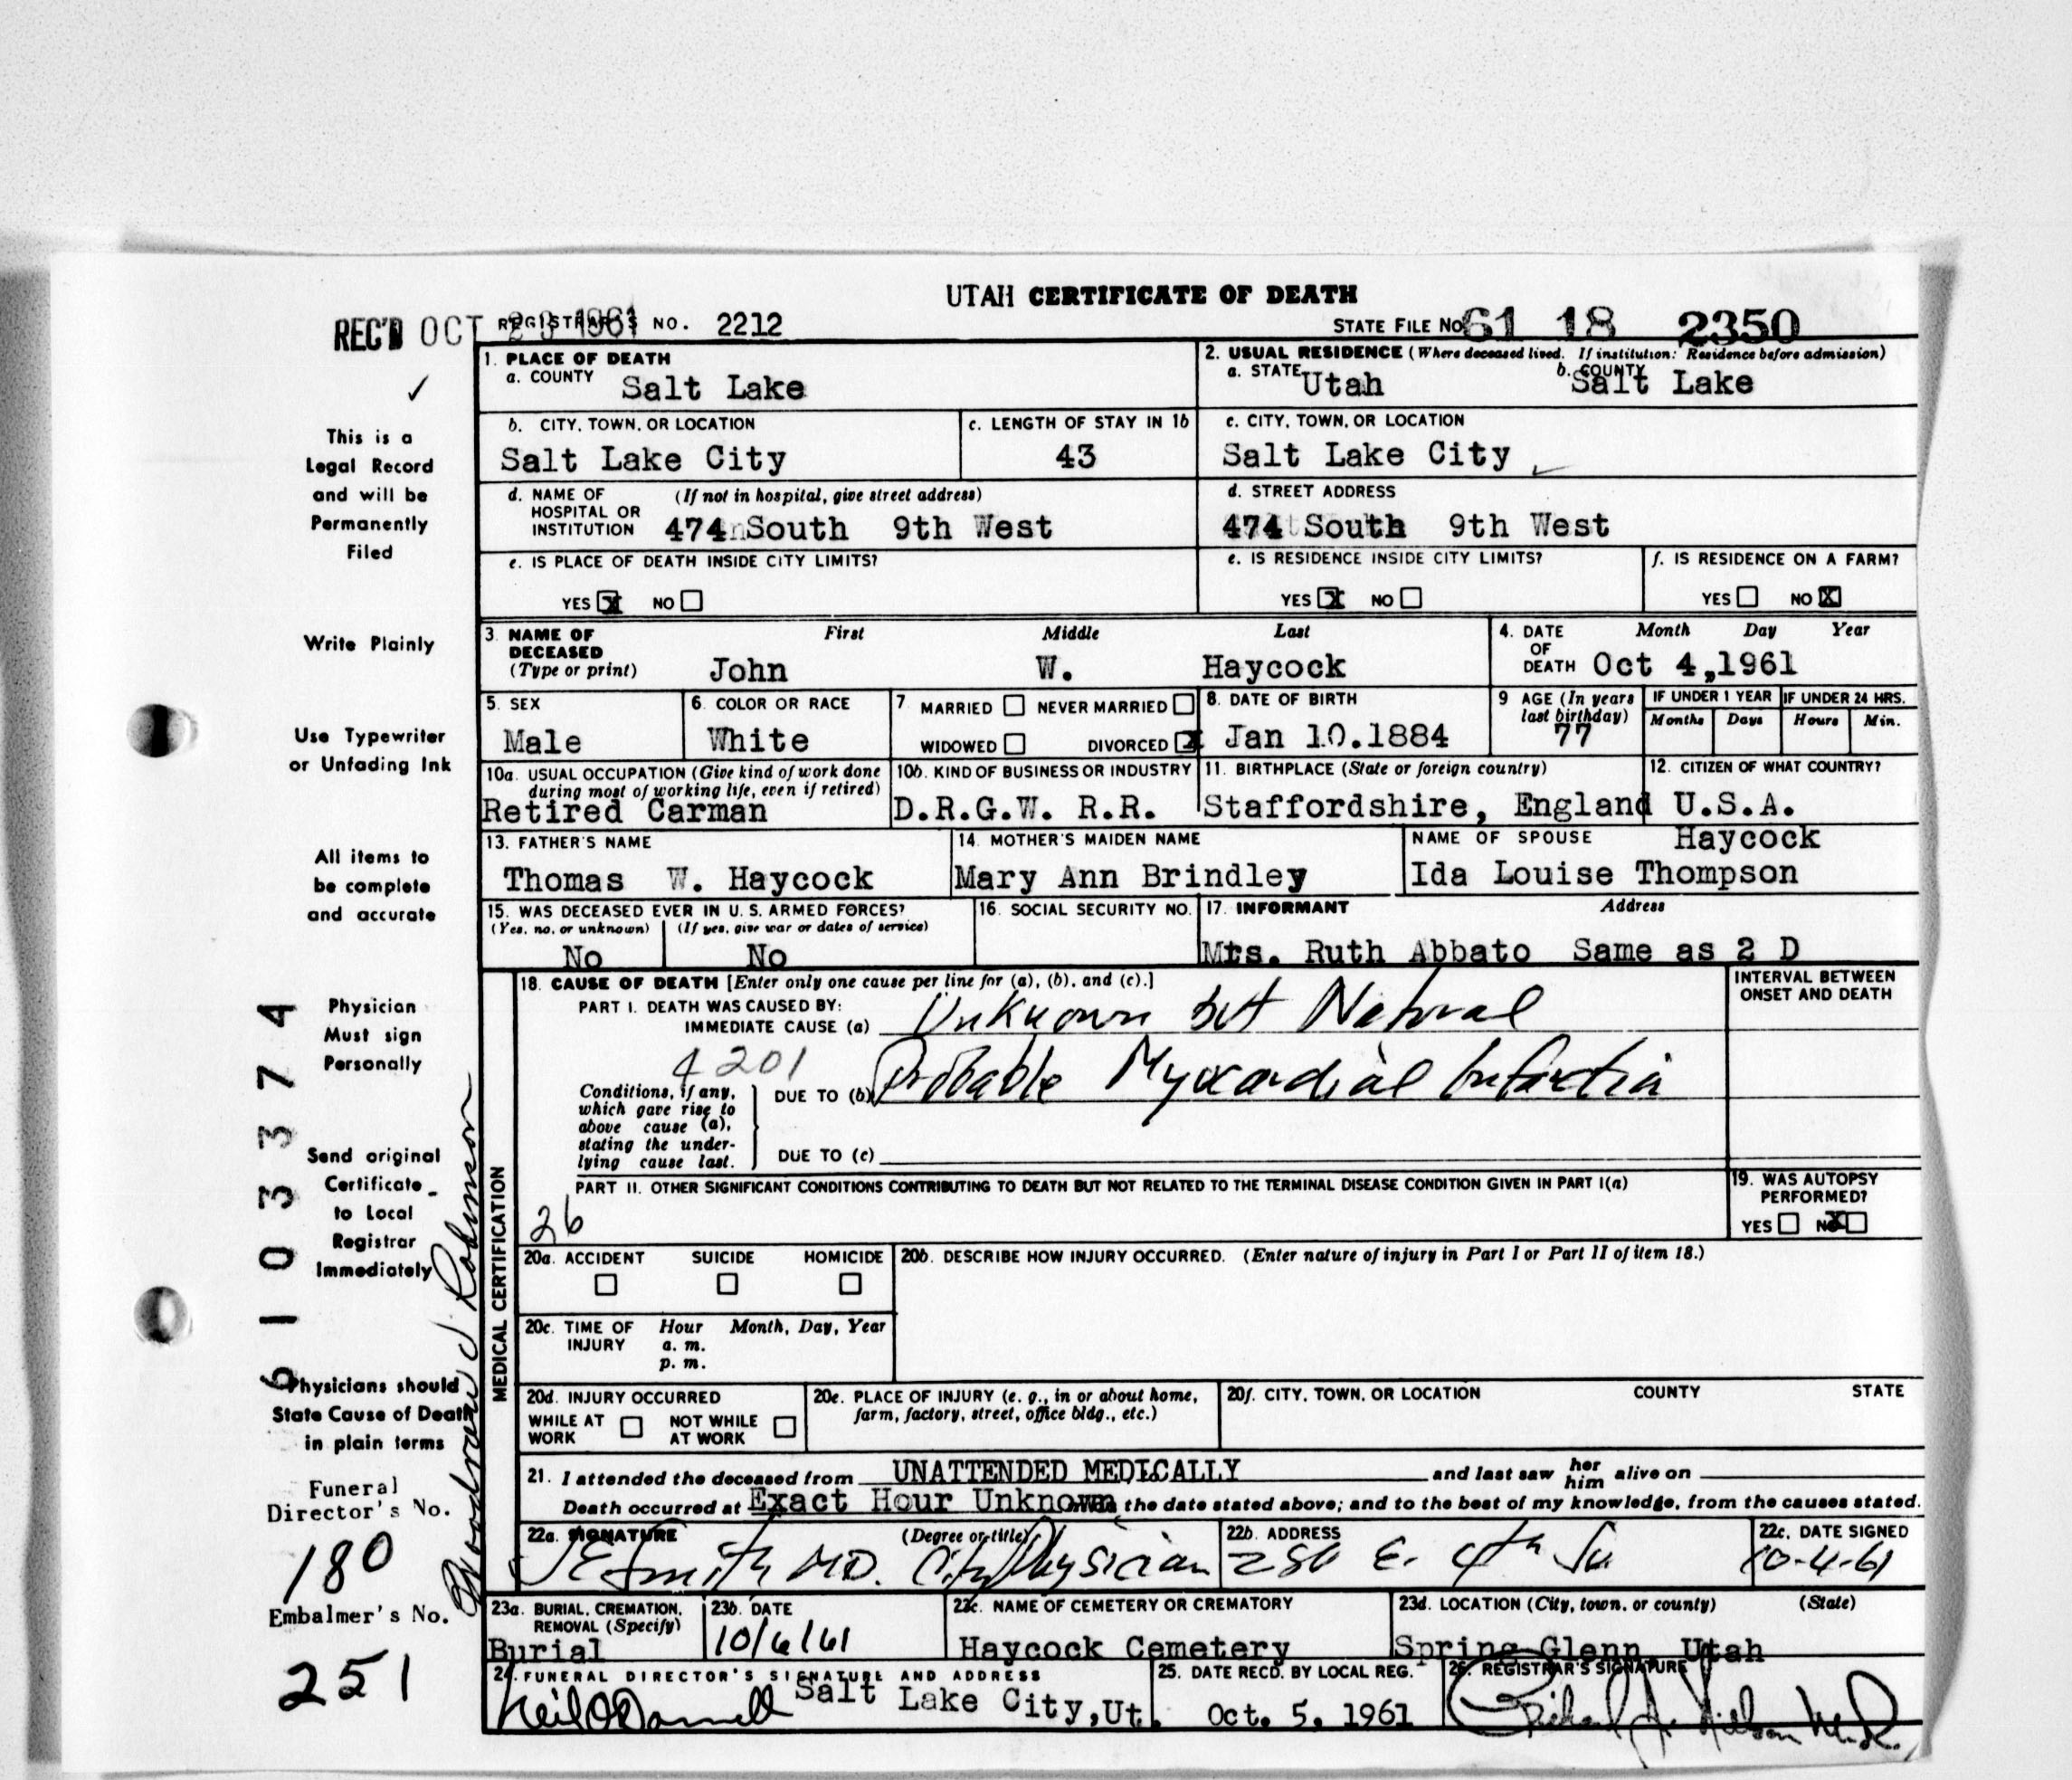 UTAH CERTIFICATE OF DEATH
REC'D OCT 23 1961 REGISTRAR'S NO. 2212 STATE FILE NO. 61 18 2350
1. PLACE OF DEATH
a. COUNTY Salt Lake
2. USUAL RESIDENCE (Where deceased lived. If institution: Residence before admission)
a. STATE Utah b. COUNTY Salt Lake
b. CITY, TOWN, OR LOCATION
Salt Lake City
c. LENGTH OF STAY IN 1b
43
c. CITY, TOWN, OR LOCATION
Salt Lake City
d. NAME OF HOSPITAL OR INSTITUTION (If not in hospital, give street address)
474 South 9th West
d. STREET ADDRESS
474 South 9th West
e. IS PLACE OF DEATH INSIDE CITY LIMITS?
YES X NO
e. IS RESIDENCE INSIDE CITY LIMITS?
YES X NO
f. IS RESIDENCE ON A FARM?
YES NO X
3. NAME OF DECEASED (Type or print) First Middle Last
John W. Haycock
4. DATE OF DEATH Month Day Year
Oct 4, 1961
5. SEX
Male
6. COLOR OR RACE
White
7. MARRIED NEVER MARRIED
WIDOWED DIVORCED X
8. DATE OF BIRTH
Jan 10.1884
9 AGE (In years last birthday)
77
IF UNDER 1 YEAR IF UNDER 24 HRS.
Months Days Hours Min.
10a. USUAL OCCUPATION (Give kind of work done during most of working life, even if retired)
Retired Carman
10b. KIND OF BUSINESS OR INDUSTRY
D.R.G.W. R.R.
11. BIRTHPLACE (State or foreign country)
Staffordshire, England
12. CITIZEN OF WHAT COUNTRY?
U.S.A.
13. FATHER'S NAME
Thomas W. Haycock
14. MOTHER'S MAIDEN NAME
Mary Ann Brindley
NAME OF SPOUSE Haycock
Ida Louise Thompson
15. WAS DECEASED EVER IN U. S. ARMED FORCES?
(Yes, no, or unknown) (If yes, give war or dates of service)
No No
16. SOCIAL SECURITY NO.
17. INFORMANT Address
Mrs. Ruth Abbato Same as 2 D
MEDICAL CERTIFICATION
18. CAUSE OF DEATH [Enter only one cause per line for (a), (b), and (c).]
INTERVAL BETWEEN ONSET AND DEATH
PART I. DEATH WAS CAUSED BY:
IMMEDIATE CAUSE (a) Unknown but Natural
4201
Conditions, if any, which gave rise to above cause (a), stating the underlying cause last.
DUE TO (b) Probable Myocardial Infarction
DUE TO (c)
PART II. OTHER SIGNIFICANT CONDITIONS CONTRIBUTING TO DEATH BUT NOT RELATED TO THE TERMINAL DISEASE CONDITION GIVEN IN PART I(a)
26
19. WAS AUTOPSY PERFORMED?
YES NO X
20a. ACCIDENT SUICIDE HOMICIDE
20b. DESCRIBE HOW INJURY OCCURRED. (Enter nature of injury in Part I or Part II of item 18.)
20c. TIME OF INJURY Hour Month, Day, Year
a. m.
p. m.
20d. INJURY OCCURRED
WHILE AT WORK NOT WHILE AT WORK
20e. PLACE OF INJURY (e. g., in or about home, farm, factory, street, office bldg., etc.)
20f. CITY, TOWN, OR LOCATION COUNTY STATE
21. I attended the deceased from UNATTENDED MEDICALLY and last saw her him alive on
Death occurred at Exact Hour Unknown the date stated above; and to the best of my knowledge, from the causes stated.
22a. SIGNATURE (Degree or title)
Smith MD. City Physician
22b. ADDRESS
280 E. 4th So
22c. DATE SIGNED
10-4-61
23a. BURIAL, CREMATION, REMOVAL (Specify)
Burial
23b. DATE
10/6/61
23c. NAME OF CEMETERY OR CREMATORY
Haycock Cemetery
23d. LOCATION (City, town, or county) (State)
Spring Glenn, Utah
24. FUNERAL DIRECTOR'S SIGNATURE AND ADDRESS
Neil O'Donnell Salt Lake City,Ut.
25. DATE RECD. BY LOCAL REG.
Oct. 5, 1961
26. REGISTRAR'S SIGNATURE
Richard A. Nielson M.D.
This is a
Legal Record
and will be
Permanently
Filed
Write Plainly
Use Typewriter
or Unfading Ink
All items to
be complete
and accurate
Physician
Must sign
Personally
Send original
Certificate
to Local
Registrar
Immediately
Physicians should
State Cause of Death
in plain terms
Funeral
Director's No.
180
Embalmer's No.
251
6103374
Woodrow J Robinson